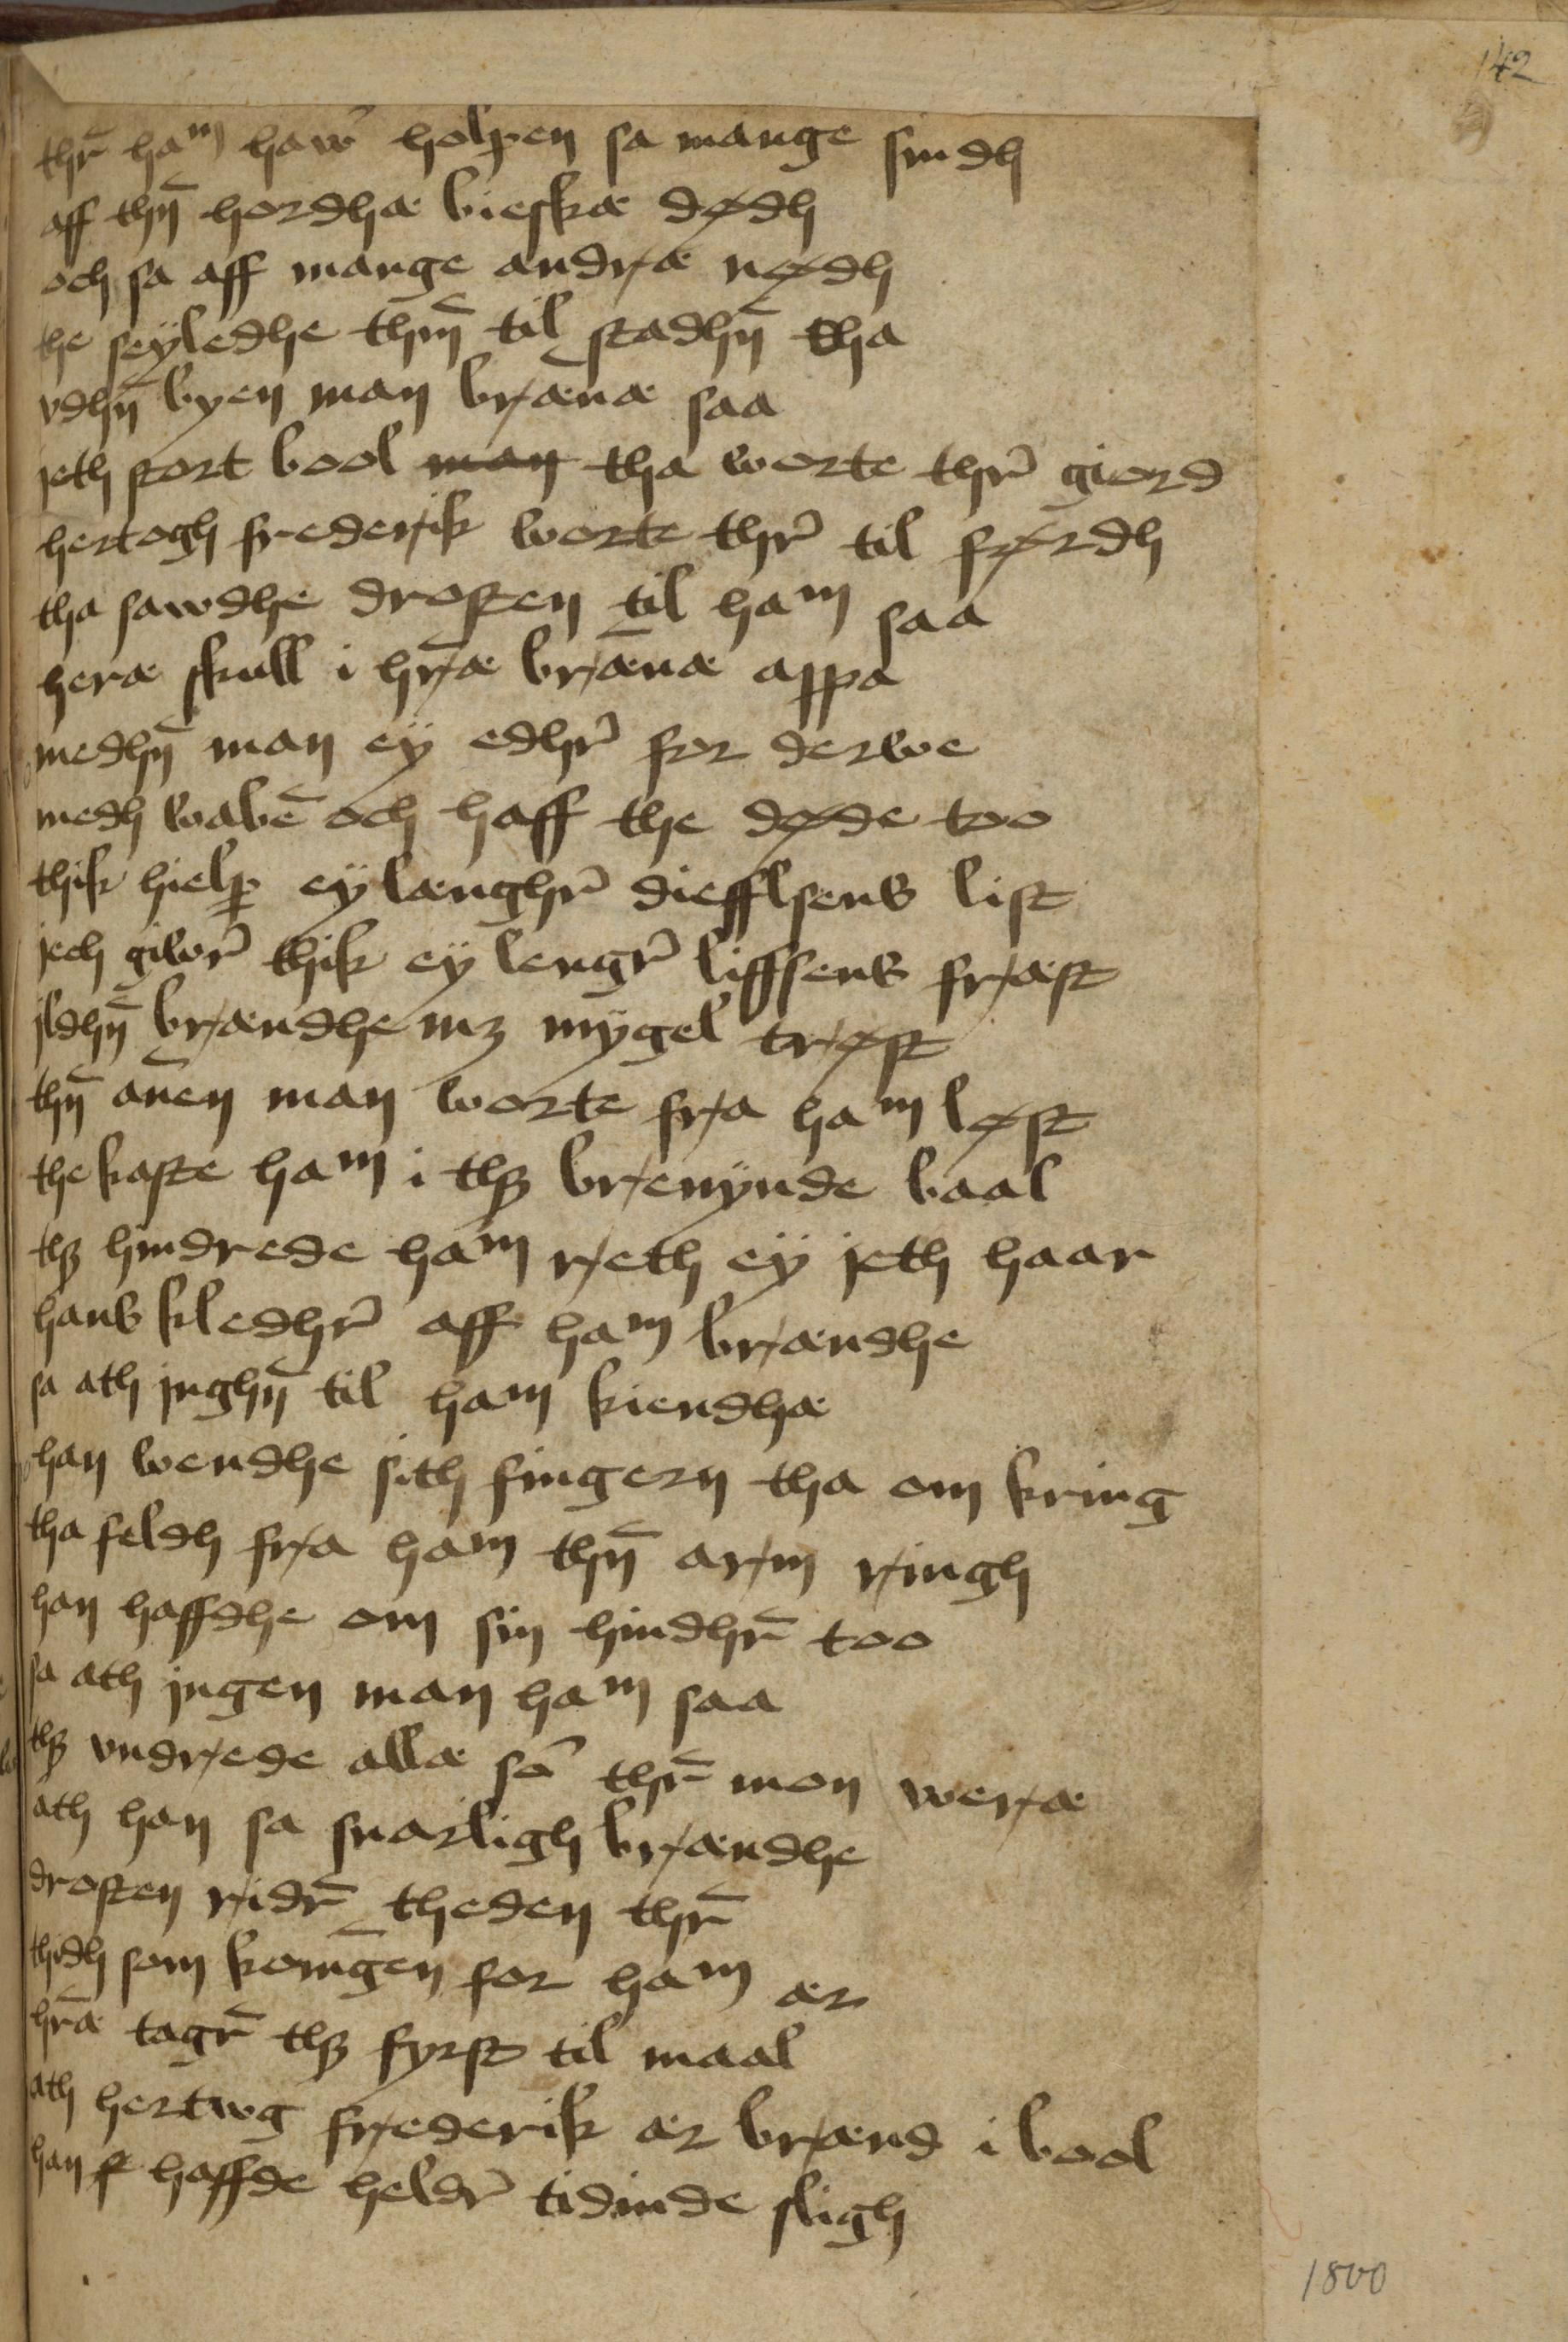 142
thr̄ ham haw̉ holpen sa mange sindh
aff thn̄ hordhæ bieskæ dødh
och sa aff mange andræ nødh
the seÿledhe thm̄ til stadhn̄ tha
vdhn̄ byen man brænæ saa
jeth stort bool man tha worte thr̉ giord
hertogh frederik worte thr̉ til førdh
tha sawdhe drosten til ham saa
heræ skull i hr̄æ brænæ appa
medhn̄ man eÿ edhr̉ for derwe
medh wabē och haff the døde too
thik hielp eÿ længhr̉ diefflsens list
jech giwr̉ thik eÿ lengr̉ liffsens fræst
jldhn̄ brændhe mz mÿgel trøst
thn̄ āuen man worte fra ham løst
the kaste ham i thz brenÿnde baal
thz hindrede ham reth eÿ jeth haar
hans kledhr̉ aff ham brændhe
sa ath jnghn̄ til ham kiendhæ
han wendhe sith fingern tha om kring
tha feldh fra ham thn̄ arm ringh
han haffdhe om sin hindhr̄ too
sa ath jngen man ham saa
thz vndrede allæ sō thr̄ mon weræ
ath han sa snarligh brændhe
drosten ridr̄ theden thr̄
thidh som koni̅gen for ham ær
hr̄æ tagr̄ thz fyrst til maal
ath hertwg frederik ær brænd i bool
han f haffde heldr̉ tidinde sligh
1800